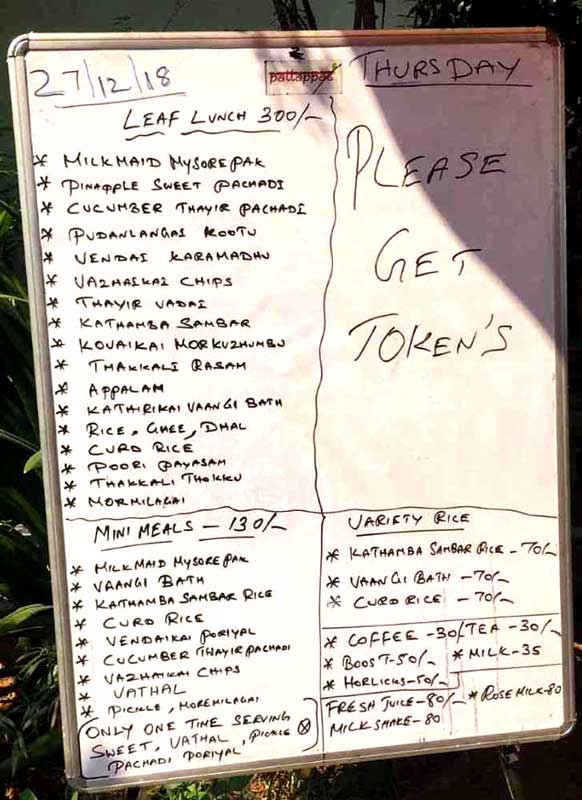 27/12/18
pattappas
THURSDAY
LEAF LUNCH 300/-
* MILKMAID MYSORE PAK
* PINAPPLE SWEET PACHADI
* CUCUMBER THAYIR PACHADI
* PUDANLANGAI KOOTU
* VENDAI KARAMADHU
* VAZHAIKAI CHIPS
* THAYIR VADAI
* KATHAMBA SAMBAR
* KOVAIKAI MORKUZHUMBU
* THAKKALI RASAM
* APPALAM
* KATHIRIKAI VAANGI BATH
* RICE, GHEE, DHAL
* CURD RICE
* POORI PAYASAM
* THAKKALI THOKKU
* MORMILAGAI
PLEASE
GET
TOKEN'S
MINI MEALS - 130/-
* MILKMAID MYSORE PAK
* VAANGI BATH
* KATHAMBA SAMBAR RICE
* CURD RICE
* VENDAIKAI PORIYAL
* CUCUMBER THAYIR PACHADI
* VAZHAIKAI CHIPS
* VATHAL
* PICKLE, MOREMILAGAI
ONLY ONE TIME SERVING
SWEET, VATHAL, PICKLE
PACHADI PORIYAL
VARIETY RICE
* KATHAMBA SAMBAR RICE - 70/-
* VAANGI BATH - 70/-
* CURD RICE - 70/-
* COFFEE - 30/- TEA - 30/-
* BOOST - 50/- * MILK - 35
* HORLICKS - 50/-
FRESH JUICE - 80/- * ROSE MILK - 80
MILK SHAKE - 80